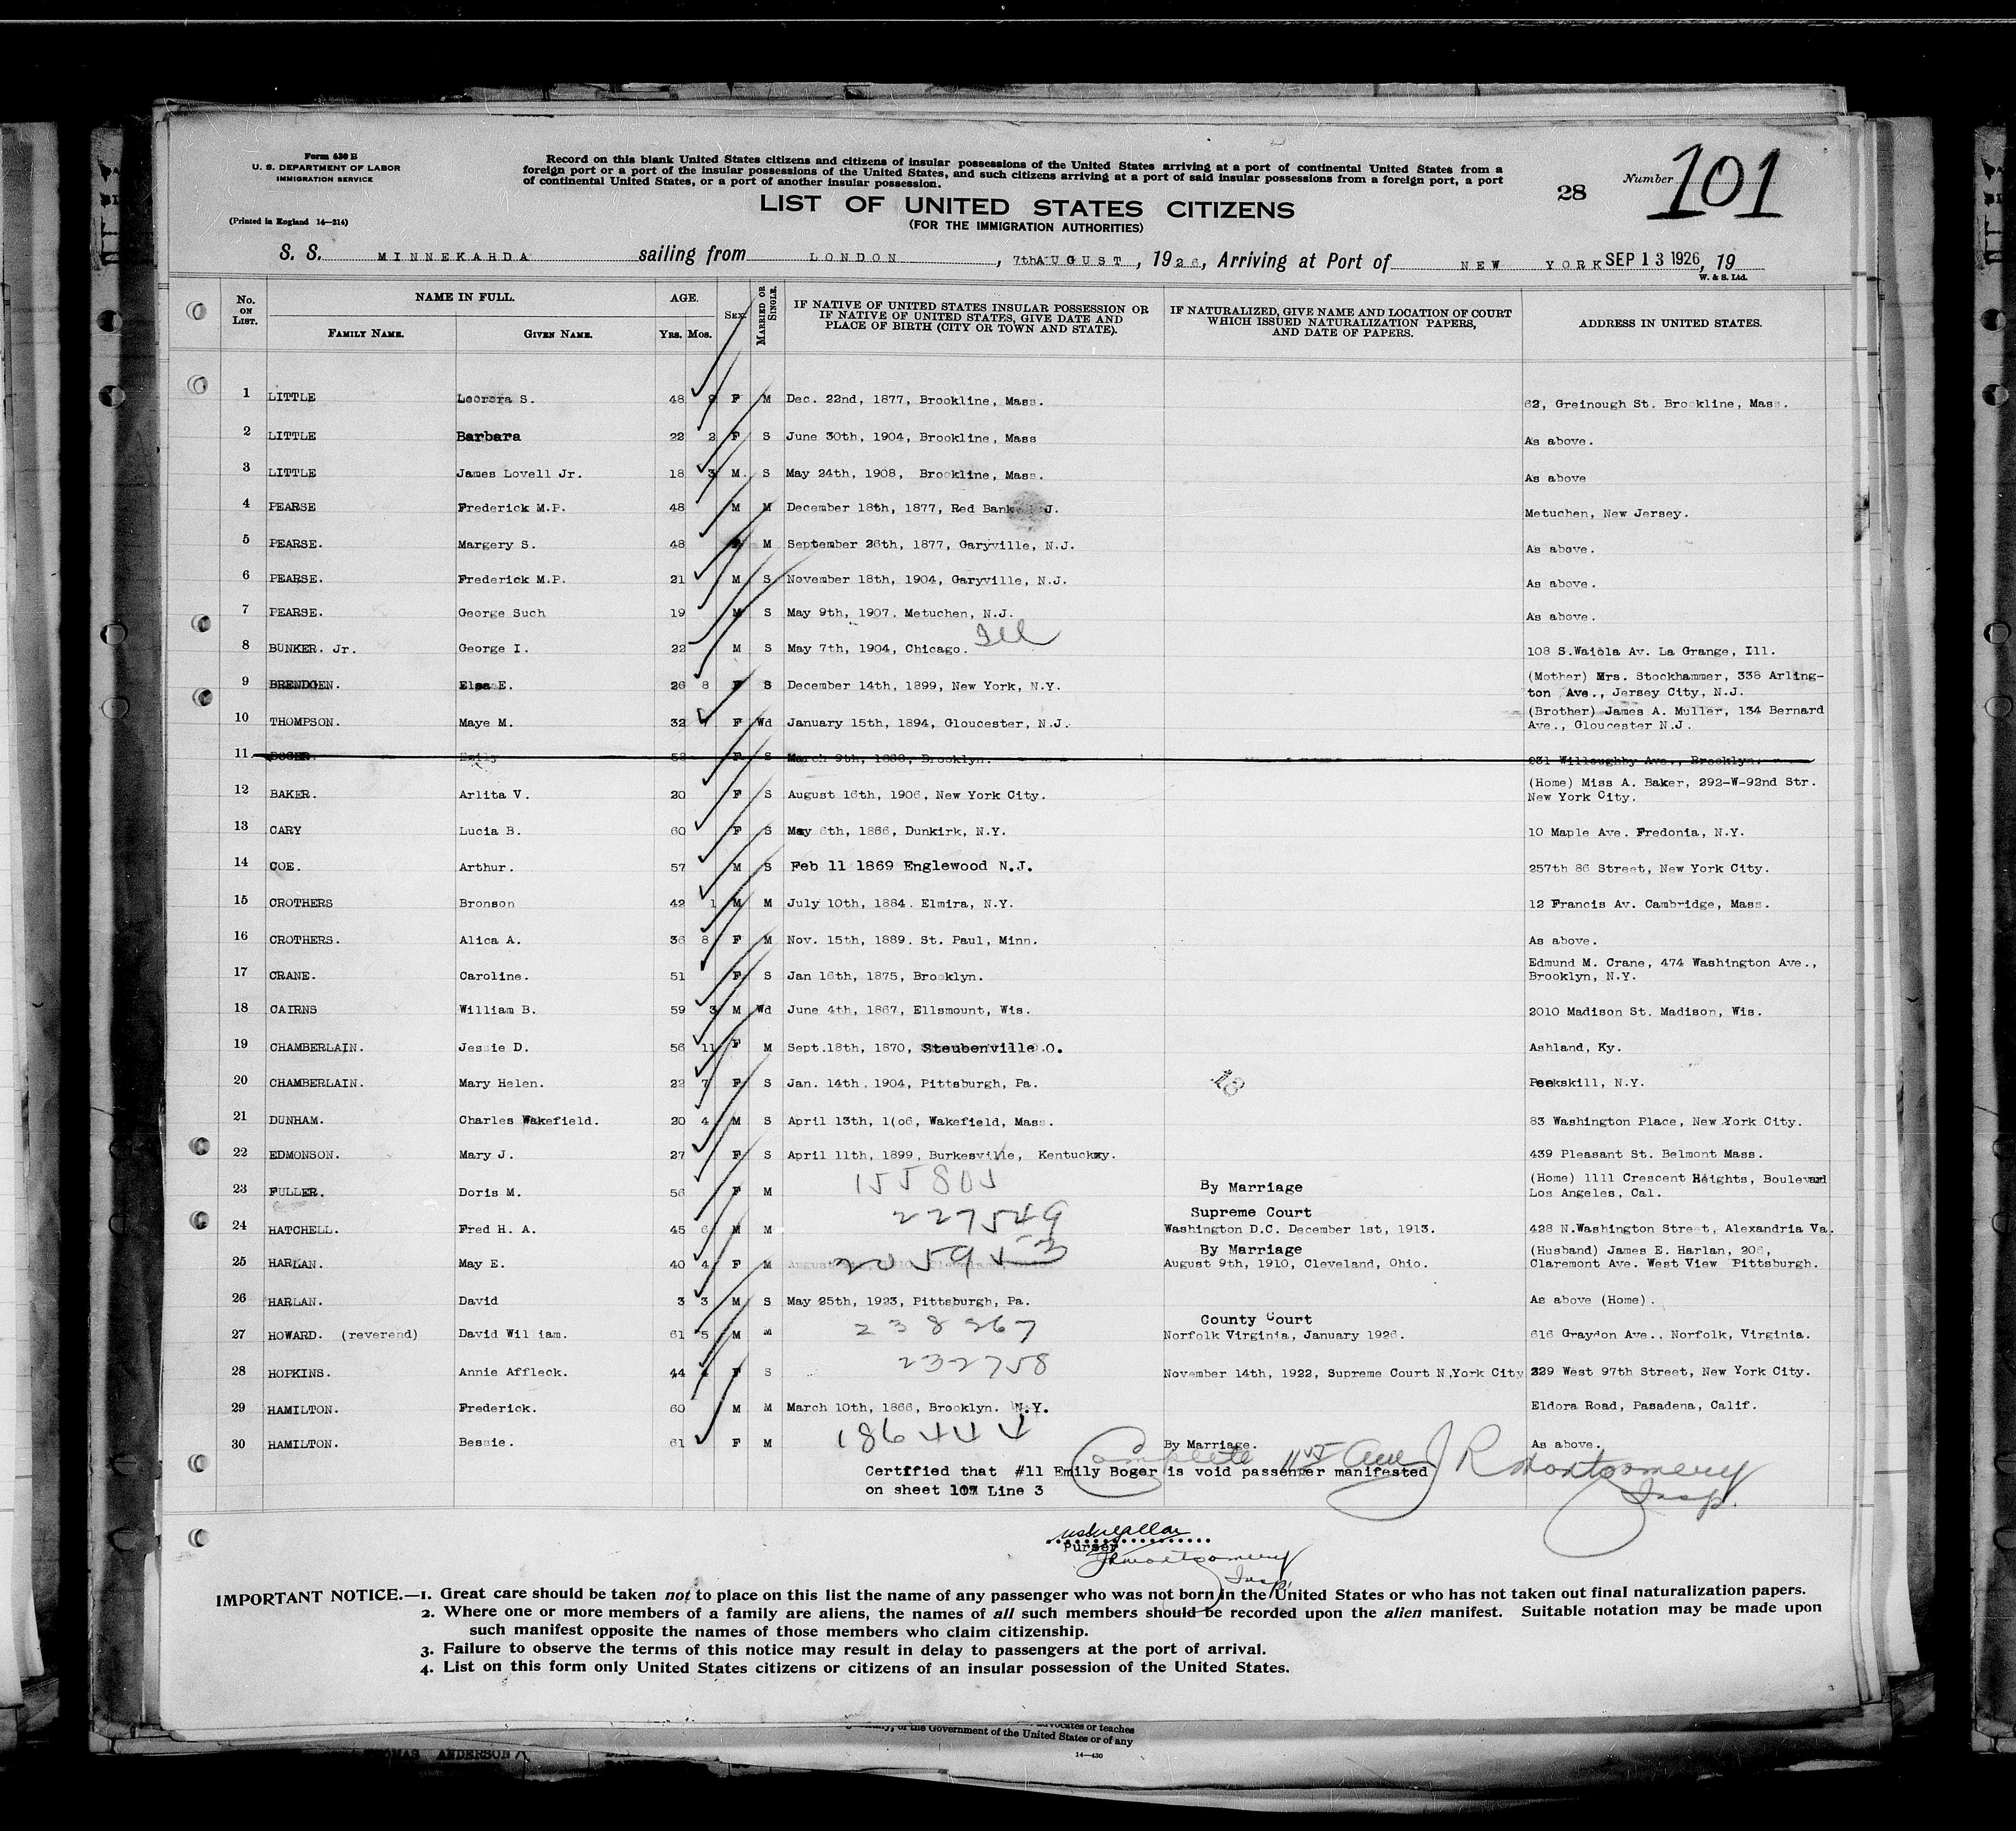 Form 630 B
U. S. DEPARTMENT OF LABOR
IMMIGRATION SERVICE
(Printed in England 14—214)
Record on this blank United States citizens and citizens of insular possessions of the United States arriving at a port of continental United States from a
foreign port or a port of the insular possessions of the United States, and such citizens arriving at a port of said insular possessions from a foreign port, a port
of continental United States, or a port of another insular possession.
28 Number 101
LIST OF UNITED STATES CITIZENS
(FOR THE IMMIGRATION AUTHORITIES)
S. S. MINNEKAHDA sailing from LONDON, 7th AUGUST, 1926, Arriving at Port of NEW YORK SEP 13 1926, 19
W. & S. Ltd.
No. ON LIST. NAME IN FULL. FAMILY NAME. GIVEN NAME. AGE. Yrs. Mos. SEX. MARRIED OR SINGLE. IF NATIVE OF UNITED STATES INSULAR POSSESSION OR IF NATIVE OF UNITED STATES, GIVE DATE AND PLACE OF BIRTH (CITY OR TOWN AND STATE). IF NATURALIZED, GIVE NAME AND LOCATION OF COURT WHICH ISSUED NATURALIZATION PAPERS, AND DATE OF PAPERS. ADDRESS IN UNITED STATES.
1 LITTLE Leorora S. 48 9 F M Dec. 22nd, 1877, Brookline, Mass. 62, Greinough St. Brookline, Mass.
2 LITTLE Barbara 22 2 F S June 30th, 1904, Brookline, Mass As above.
3 LITTLE James Lovell Jr. 18 3 M. S May 24th, 1908, Brookline, Mass. As above
4 PEARSE Frederick M.P. 48 M M December 18th, 1877, Red Bank J. Metuchen, New Jersey.
5 PEARSE. Margery S. 48 M September 26th, 1877, Garyville, N.J. As above.
6 PEARSE. Frederick M.P. 21 M S November 18th, 1904, Garyville, N.J. As above.
7 PEARSE. George Such 19 M S May 9th, 1907. Metuchen, N.J. As above.
8 BUNKER. Jr. George I. 22 M S May 7th, 1904, Chicago. Ill 108 S.Waiola Av. La Grange, Ill.
9 BRENDGEN. Elsa E. 26 8 F S December 14th, 1899, New York, N.Y. (Mother) Mrs. Stockhammer, 338 Arling-
ton Ave., Jersey City, N.J.
10 THOMPSON. Maye M. 32 7 F Wd January 15th, 1894, Gloucester, N.J. (Brother) James A. Muller, 134 Bernard
Ave., Gloucester N.J.
11 BOGER. Emily 58 F S March 9th, 1868, Brooklyn. 231 Willoughby Ave., Brooklyn.
12 BAKER. Arlita V. 20 F S August 16th, 1906, New York City. (Home) Miss A. Baker, 292-W-92nd Str.
New York City.
13 CARY Lucia B. 60 F S May 6th, 1866, Dunkirk, N.Y. 10 Maple Ave. Fredonia, N.Y.
14 COE. Arthur. 57 M S Feb 11 1869 Englewood N.J. 257th 86 Street, New York City.
15 CROTHERS Bronson 42 1 M M July 10th, 1884. Elmira, N.Y. 12 Francis Av. Cambridge, Mass.
16 CROTHERS. Alica A. 36 8 F M Nov. 15th, 1889. St. Paul, Minn. As above.
17 CRANE. Caroline. 51 F S Jan 16th, 1875, Brooklyn. Edmund M. Crane, 474 Washington Ave.,
Brooklyn, N.Y.
18 CAIRNS William B. 59 3 M Wd June 4th, 1867, Ellsmount, Wis. 2010 Madison St. Madison, Wis.
19 CHAMBERLAIN. Jessie D. 56 11 F M Sept.18th, 1870, Steubenville O. Ashland, Ky.
20 CHAMBERLAIN. Mary Helen. 22 7 F S Jan. 14th, 1904, Pittsburgh, Pa. 18 Peekskill, N.Y.
21 DUNHAM. Charles Wakefield. 20 4 M S April 13th, 1(06, Wakefield, Mass. 83 Washington Place, New York City.
22 EDMONSON. Mary J. 27 F S April 11th, 1899, Burkesville, Kentuckxy. 439 Pleasant St. Belmont Mass.
23 FULLER. Doris M. 56 F M 155805 By Marriage (Home) 1111 Crescent Heights, Boulevard
Los Angeles, Cal.
24 HATCHELL. Fred H. A. 45 6 M M 227549 Supreme Court
Washington D.C. December 1st, 1913. 428 N.Washington Street, Alexandria Va.
25 HARLAN. May E. 40 4 F M 205953 By Marriage
August 9th, 1910, Cleveland, Ohio. (Husband) James E. Harlan, 206,
Claremont Ave. West View Pittsburgh.
26 HARLAN. David 3 3 M S May 25th, 1923, Pittsburgh, Pa. As above (Home).
27 HOWARD. (reverend) David William. 61 5 M M 238267 County Court
Norfolk Virginia, January 1926. 616 Graydon Ave., Norfolk, Virginia.
28 HOPKINS. Annie Affleck. 44 4 F S 232758 November 14th, 1922, Supreme Court N.York City 229 West 97th Street, New York City.
29 HAMILTON. Frederick. 60 M M March 10th, 1866, Brooklyn. N.Y. Eldora Road, Pasadena, Calif.
30 HAMILTON. Bessie. 61 F M 186444 By Marriage. As above.
Complete J R Montgomery
Insp.
Certified that #11 Emily Boger is void passenger manifested
on sheet 107 Line 3
Purser
JRMontgomery
Insp.
IMPORTANT NOTICE.—1. Great care should be taken not to place on this list the name of any passenger who was not born in the United States or who has not taken out final naturalization papers.
2. Where one or more members of a family are aliens, the names of all such members should be recorded upon the alien manifest. Suitable notation may be made upon
such manifest opposite the names of those members who claim citizenship.
3. Failure to observe the terms of this notice may result in delay to passengers at the port of arrival.
4. List on this form only United States citizens or citizens of an insular possession of the United States.
advocates or teaches
of the Government of the United States or of any
14—430
THOMAS ANDERSON